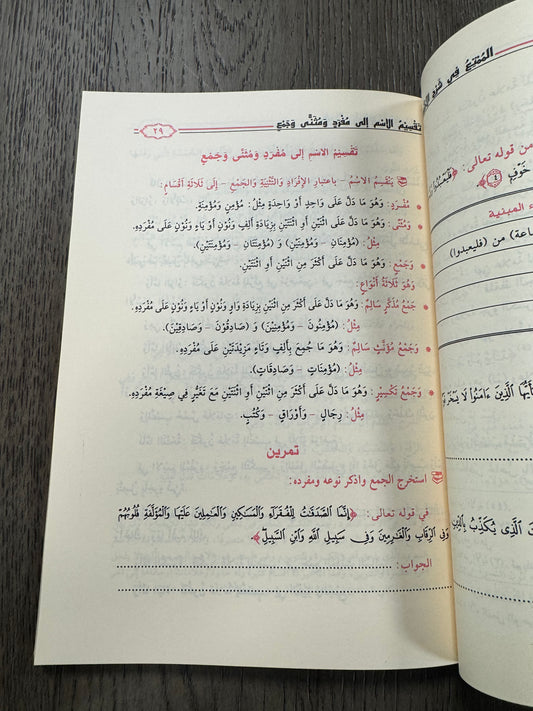 المُمْتِعُ فِي شَرْحِ
تَقْسِيمُ الاسْمِ إلى مُفْرَدٍ وَمُثَنًّى وَجَمْعٍ
٢٩
تَقْسِيمُ الاسْمِ إلى مُفْرَدٍ وَمُثَنًّى وَجَمْعٍ
يَنْقَسِمُ الاسْمُ - بِاعتِبارِ الإِفْرَادِ وَالتَّثْنِيَةِ وَالجَمْعِ - إِلَى ثَلَاثَةِ أَقْسَامٍ:
• مُفْرَدٍ: وَهُوَ مَا دَلَّ عَلَى وَاحِدٍ أَوْ وَاحِدَةٍ مِثْلُ: مُؤْمِنٍ وَمُؤْمِنَةٍ.
• وَمُثَنًّى: وَهُوَ مَا دَلَّ عَلَى اثْنَيْنِ أَوِ اثْنَتَيْنِ بِزِيَادَةِ أَلِفٍ وَنُونٍ أَوْ يَاءٍ وَنُونٍ عَلَى مُفْرَدِهِ.
مِثْلُ: (مُؤْمِنَانِ - وَمُؤْمِنَيْنِ) وَ (مُؤْمِنَتَانِ - وَمُؤْمِنَتَيْنِ).
• وَجَمْعٍ: وَهُوَ مَا دَلَّ عَلَى أَكْثَرَ مِنِ اثْنَيْنِ أَوِ اثْنَتَيْنِ.
وَهُوَ ثَلَاثَةُ أَنْوَاعٍ:
• جَمْعُ مُذَكَّرٍ سَالِمٌ: وَهُوَ مَا دَلَّ عَلَى أَكْثَرَ مِنِ اثْنَيْنِ بِزِيَادَةِ وَاوٍ وَنُونٍ أَوْ يَاءٍ وَنُونٍ عَلَى مُفْرَدِهِ.
مِثْلُ: (مُؤْمِنُونَ - وَمُؤْمِنِيْنَ) وَ (صَادِقُوْنَ - وَصَادِقِيْنَ).
• وَجَمْعُ مُؤَنَّثٍ سَالِمٌ: وَهُوَ مَا جُمِعَ بِأَلِفٍ وَتَاءٍ مَزِيْدَتَيْنِ عَلَى مُفْرَدِهِ.
مِثْلُ: (مُؤْمِنَاتٍ - وَصَادِقَاتٍ).
• وَجَمْعُ تَكْسِيرٍ: وَهُوَ مَا دَلَّ عَلَى أَكْثَرَ مِنِ اثْنَيْنِ أَوِ اثْنَتَيْنِ مَعَ تَغَيُّرٍ فِي صِيْغَةِ مُفْرَدِهِ.
مِثْلُ: رِجَالٍ - وَأَوْرَاقٍ - وَكُتُبٍ.
تمرين
استخرج الجمع واذكر نوعه ومفرده:
في قوله تعالى: ﴿إِنَّمَا ٱلصَّدَقَٰتُ لِلْفُقَرَآءِ وَٱلْمَسَٰكِينِ وَٱلْعَٰمِلِينَ عَلَيْهَا وَٱلْمُؤَلَّفَةِ قُلُوبُهُمْ
وَفِي ٱلرِّقَابِ وَٱلْغَٰرِمِينَ وَفِي سَبِيلِ ٱللَّهِ وَٱبْنِ ٱلسَّبِيلِ﴾
الجواب:
من قوله تعالى:
خَوْفٍ ٤﴾
ء المبنية
اعة) من (فليعبدوا)
أَيُّهَا ٱلَّذِينَ ءَامَنُوا۟ لَا
ٱلَّذِى يُكَذِّبُ بِٱلدِّينِ